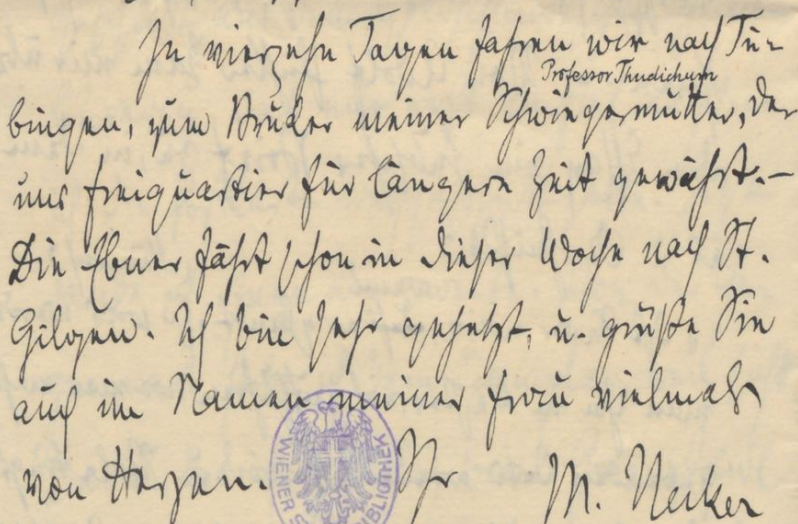 In vierzehn Tagen fahren wir nach Tü-
Professor Thudichum
bingen, zum Bruder meiner Schwiegermutter, der
uns Freiquartier für längere Zeit gewährt. –
Die Ebner fährt schon in dieser Woche nach St.
Gilgen. Ich bin sehr gehetzt, u. grüße Sie
auch im Namen meiner Frau vielmals
von Herzen. Ihr M. Necker
WIENER S BIBLIOTHEK